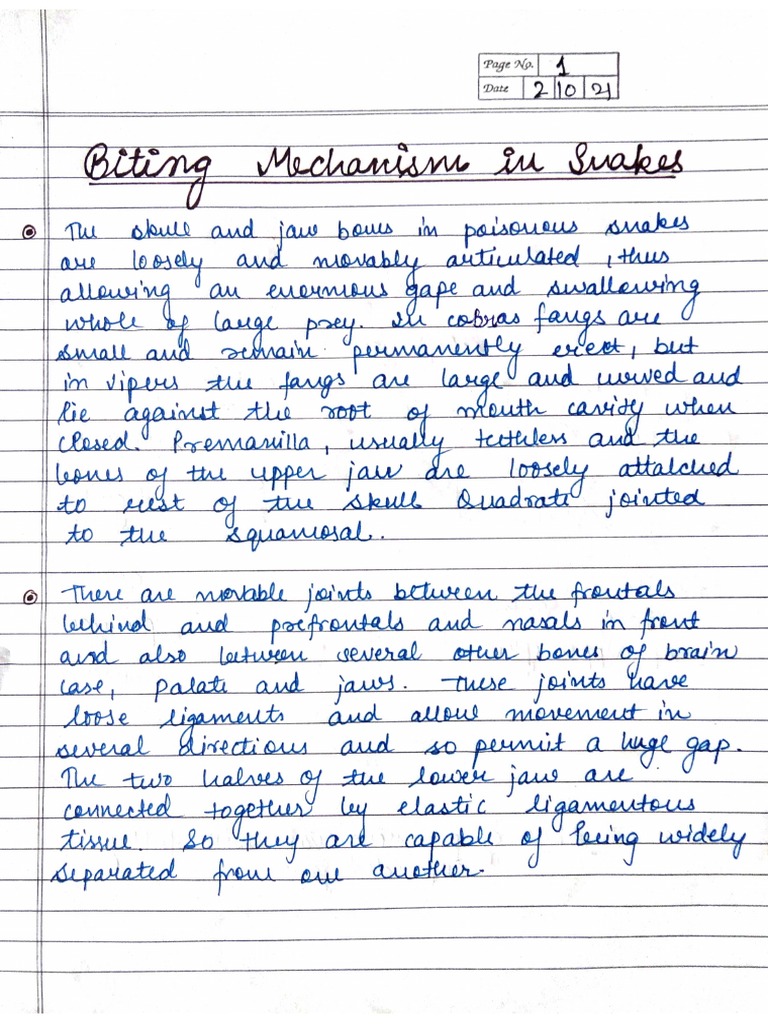 Page No. 1
Date 2 10 21
Biting Mechanism in Snakes
The skull and jaw bones in poisonous snakes
are loosely and movably articulated, thus
allowing an enormous gape and swallowing
whole of large prey. In cobras fangs are
small and remain permanently erect, but
in vipers the fangs are large and curved and
lie against the root of mouth cavity when
closed. Premanilla, usually teethless and the
bones of the upper jaw are loosely attatched
to rest of the skull Quadrate jointed
to the squamosal.
There are movable joints between the frontals
behind and prefrontals and nasals in front
and also between several other bones of brain
case, palate and jaws. These joints have
loose ligaments and allow movement in
several directions and so permit a huge gap.
The two halves of the lower jaw are
connected together by elastic ligamentous
tissue. So they are capable of being widely
separated from one another.